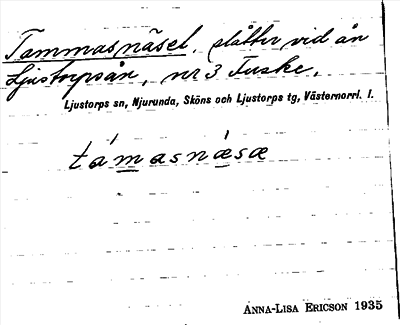 Tammasnäset, slåtter vid ån
Ljustorpsån, nr 3 Fuske.
Ljustorps sn, Njurunda, Sköns och Ljustorps tg, Västernorrl. l.
támasnǽsæ
ANNA-LISA ERICSON 1935